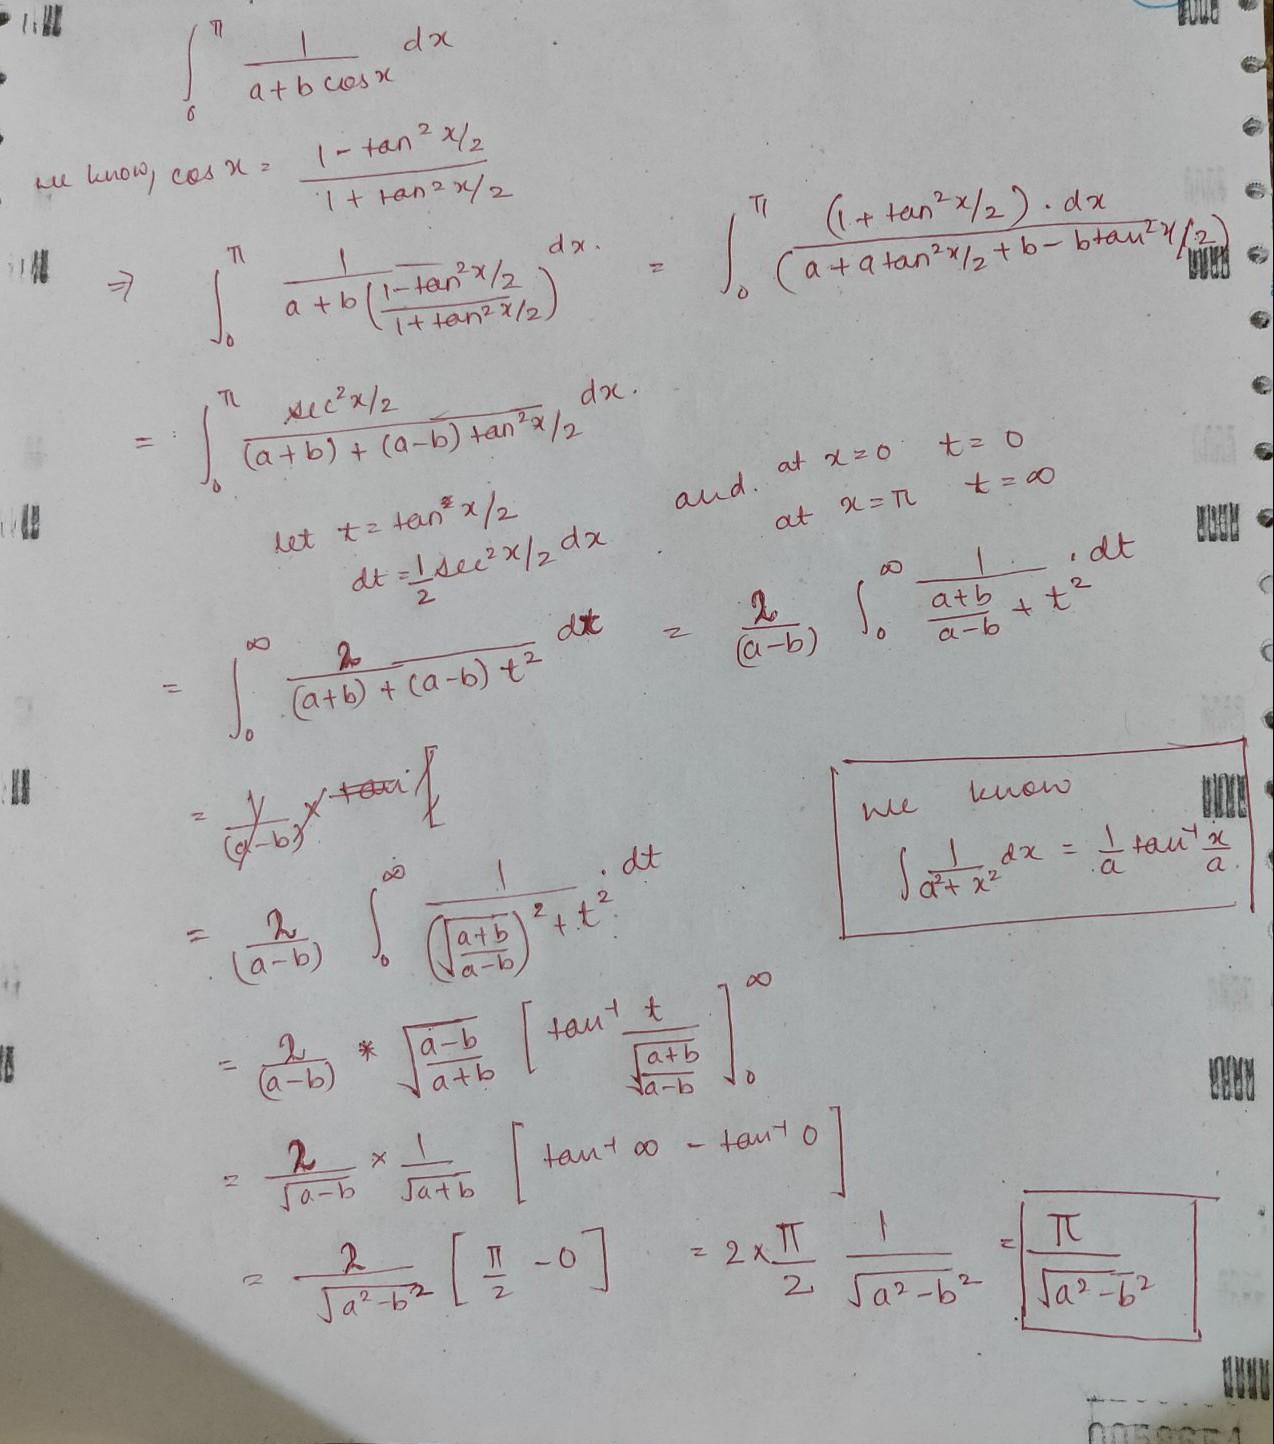 ∫₀^π 1/(a+b cosx) dx
we know, cos x = (1 - tan² x/2)/(1 + tan² x/2)
⇒ ∫₀^π 1/(a + b((1-tan² x/2)/(1+tan² x/2))) dx. = ∫₀^π (1+tan² x/2).dx/(a + a tan² x/2 + b - b tan² x/2)
= ∫₀^π sec² x/2/((a+b) + (a-b) tan² x/2) dx.
let t = tan x/2 and. at x=0 t=0
dt = 1/2 sec² x/2 dx at x=π t=∞
= ∫₀^∞ 2/((a+b) + (a-b) t²) dt = 2/(a-b) ∫₀^∞ 1/((a+b)/(a-b) + t²) .dt
= 1/(a-b) × tan⁻¹ [
we know
∫ 1/(a²+x²) dx = 1/a tan⁻¹ x/a.
= 2/(a-b) ∫₀^∞ 1/((√((a+b)/(a-b)))² + t²) .dt
= 2/(a-b) * √((a-b)/(a+b)) [tan⁻¹ t/√((a+b)/(a-b))]₀^∞
= 2/√(a-b) × 1/√(a+b) [tan⁻¹ ∞ - tan⁻¹ 0]
= 2/√(a²-b²) [π/2 - 0] = 2 × π/2 1/√(a²-b²) = π/√(a²-b²)